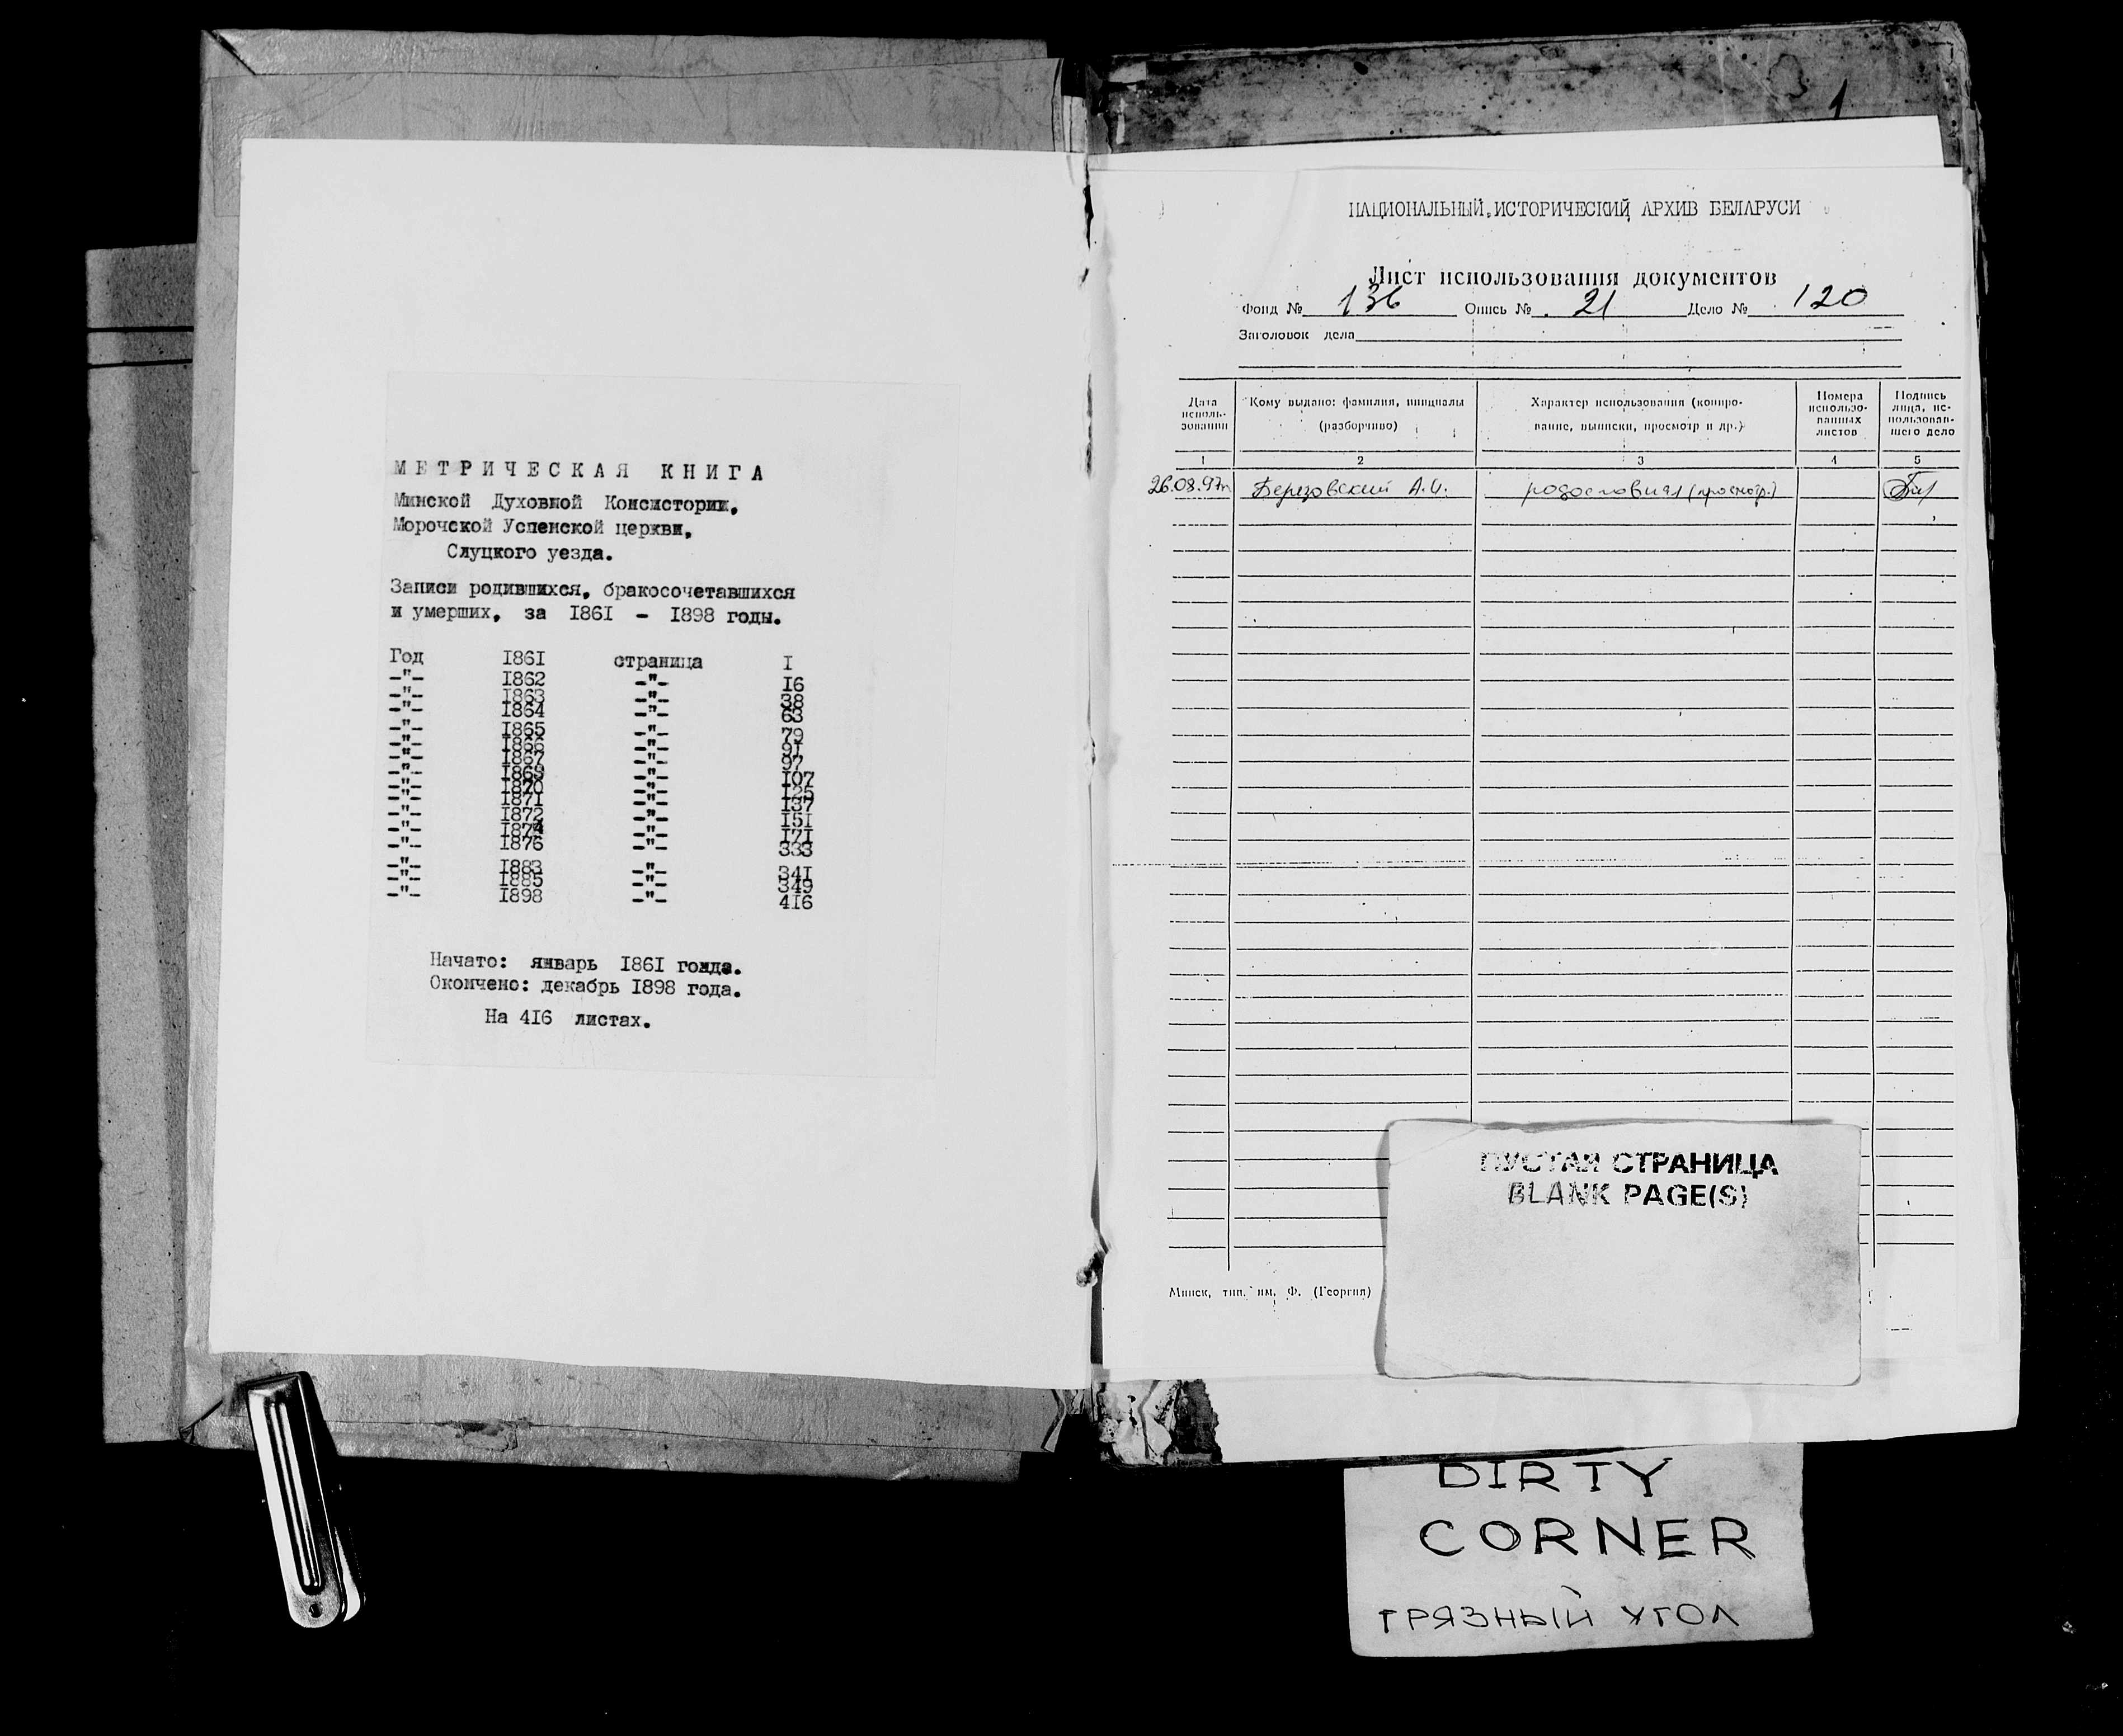 МЕТРИЧЕСКАЯ КНИГА
Минской Духовной Консистории,
Морочской Успенской церкви,
Слуцкого уезда.
Записи родившихся, бракосочетавшихся
и умерших, за 1861 - 1898 годы.
Год 1861 страница 1
-"- 1862 -"- 16
-"- 1863 -"- 38
-"- 1864 -"- 63
-"- 1865 -"- 79
-"- 1866 -"- 91
-"- 1867 -"- 97
-"- 1869 -"- 107
-"- 1870 -"- 125
-"- 1871 -"- 137
-"- 1872 -"- 151
-"- 1874 -"- 171
-"- 1876 -"- 333
-"- 1883 -"- 341
-"- 1885 -"- 349
-"- 1898 -"- 416
Начато: январь 1861 года.
Окончено: декабрь 1898 года.
На 416 листах.
1
НАЦИОНАЛЬНЫЙ ИСТОРИЧЕСКИЙ АРХИВ БЕЛАРУСИ
Лист использования документов
Фонд № 136 Опись № 21 Дело № 120
Заголовок дела
Дата исполь-зования
Кому выдано: фамилия, инициалы (разборчиво)
Характер использования (копиро-вание, выписки, просмотр и др.)
Номера использо-ванных листов
Подпись лица, ис-пользовав-шего дело
1 2 3 4 5
26.08.97г Березовский А.И. родословная (просмотр.)
Минск, тип. им. Ф. (Георгия)
ПУСТАЯ СТРАНИЦА
BLANK PAGE(S)
DIRTY
CORNER
ГРЯЗНЫЙ УГОЛ